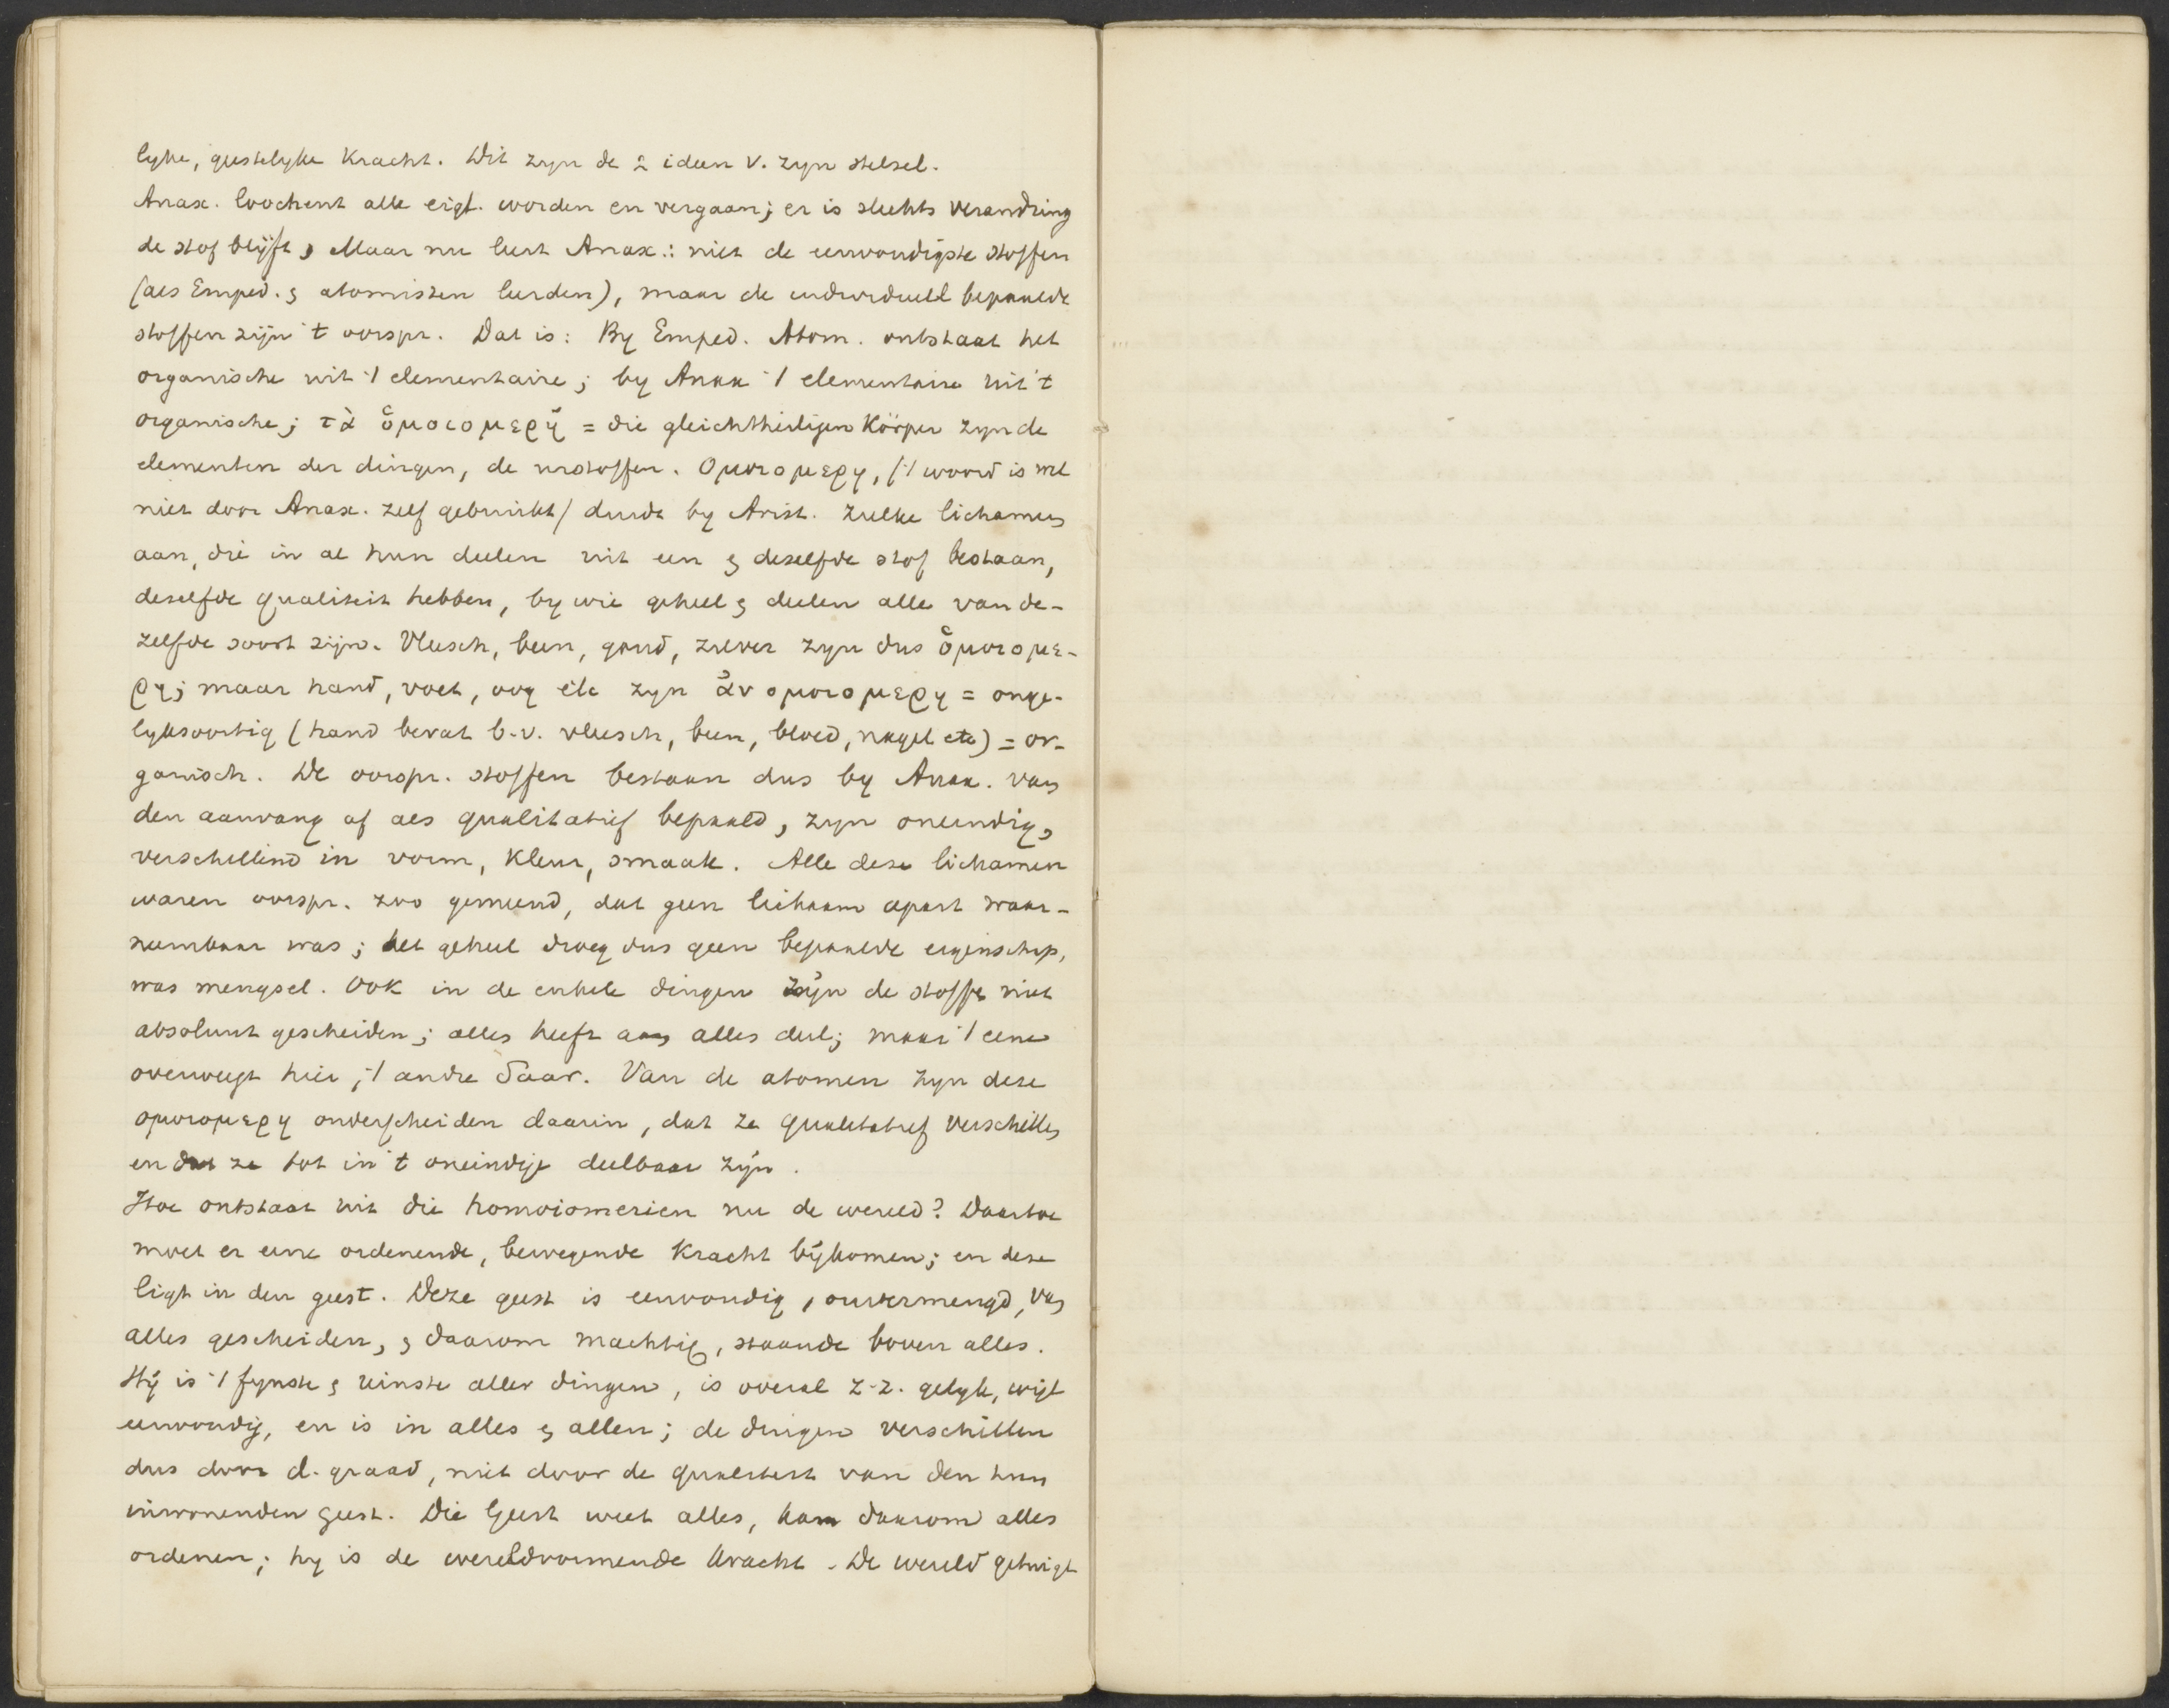 lyke, geestelyke kracht. Dit zyn de 2 ideen v. zyn stelsel.
Anax. loochent alle eigl. worden en vergaan; er is slechts verandring
de stof blijft, Maar nu leert Anax.: niet de eenvoudigste stoffen
(als Emped. & atomisten leerden), maar de individueel bepaalde
stoffen zijn 't oorspr. Dat is: By Emped. Atom. ontstaat het
organische uit 't elementaire; by Anax 't elementaire uit 't
organische; τὰ ὁμοιομερῆ = die gleichtheiligen Körper zyn de
elementen der dingen, de urstoffen. Ομοιομερη, ('t woord is wel
niet door Anax. zelf gebruikt) duidt by Arist. zulke lichamen
aan, die in al hun deelen uit een & deselfde stof bestaan,
deselfde qualiteit hebben, by wie geheel & deelen alle van de-
zelfde soort zijn. Vleesch, been, goud, zilver zyn dus ὁμοιομε-
ρη; maar hand, voet, oog etc zyn ἀνομοιομερη = onge-
lyksoortig (hand bevat b.v. vleesch, been, bloed, nagel etc) = or-
ganisch. De oorspr. stoffen bestaan dus by Anax. van
den aanvang af als qualitatief bepaald, zyn oneindig,
verschillend in vorm, kleur, smaak. Alle deze lichamen
waren oorspr. zoo gemend, dat geen lichaam apart waar-
neembaar was; het geheel droeg dus geen bepaalde eigenschap,
was mengsel. Ook in de enkele dingen zijn de stoffen niet
absoluut gescheiden; alles heeft aan alles deel; maar 't eene
overweegt hier, 't andre daar. Van de atomen zyn deze
ομοιομερη onderscheiden daarin, dat ze qualitatief verschillen
en dat ze tot in 't oneindige deelbaar zijn.
Hoe ontstaat uit die homoiomerien nu de wereld? Daartoe
moet er eene ordenende, bewegende kracht bijkomen; en deze
ligt in den geest. Deze geest is eenvoudig, onvermengd, van
alles gescheiden, & daarom machtig, staande boven alles.
Hij is 't fynste & reinste aller dingen, is overal z.z. gelyk, wijl
eenvoudig, en is in alles & allen; de dingen verschillen
dus door d. graad, niet door de qualiteit van den hun
inwonenden geest. Die Geest weet alles, kan daarom alles
ordenen; hy is de wereldvormende kracht. De wereld getuigt